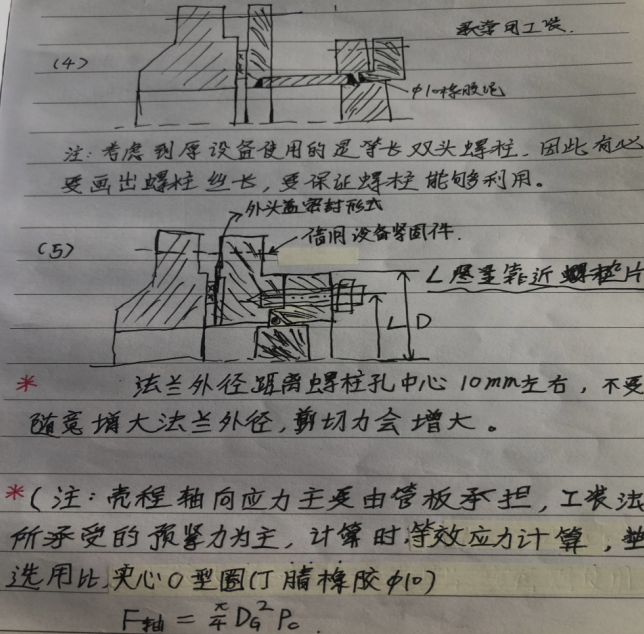 常用工装.
(4)
φ10橡胶泥
注:考虑到原设备使用的是等长双头螺柱.因此有必
要画出螺柱丝长,要保证螺柱能够利用。
外头盖密封形式
(5)
借用设备紧固件.
L尽量靠近螺垫片
L D
* 法兰外径距离螺柱孔中心10mm左右,不要
随意增大法兰外径,剪切力会增大。
*(注:壳程轴向应力主要由管板承担,工装法
所承受的预紧力为主,计算时,等效应力计算,垫
选用比.实心O型圈(丁腈橡胶φ10)
F轴 = π/4 D_G² P_c.